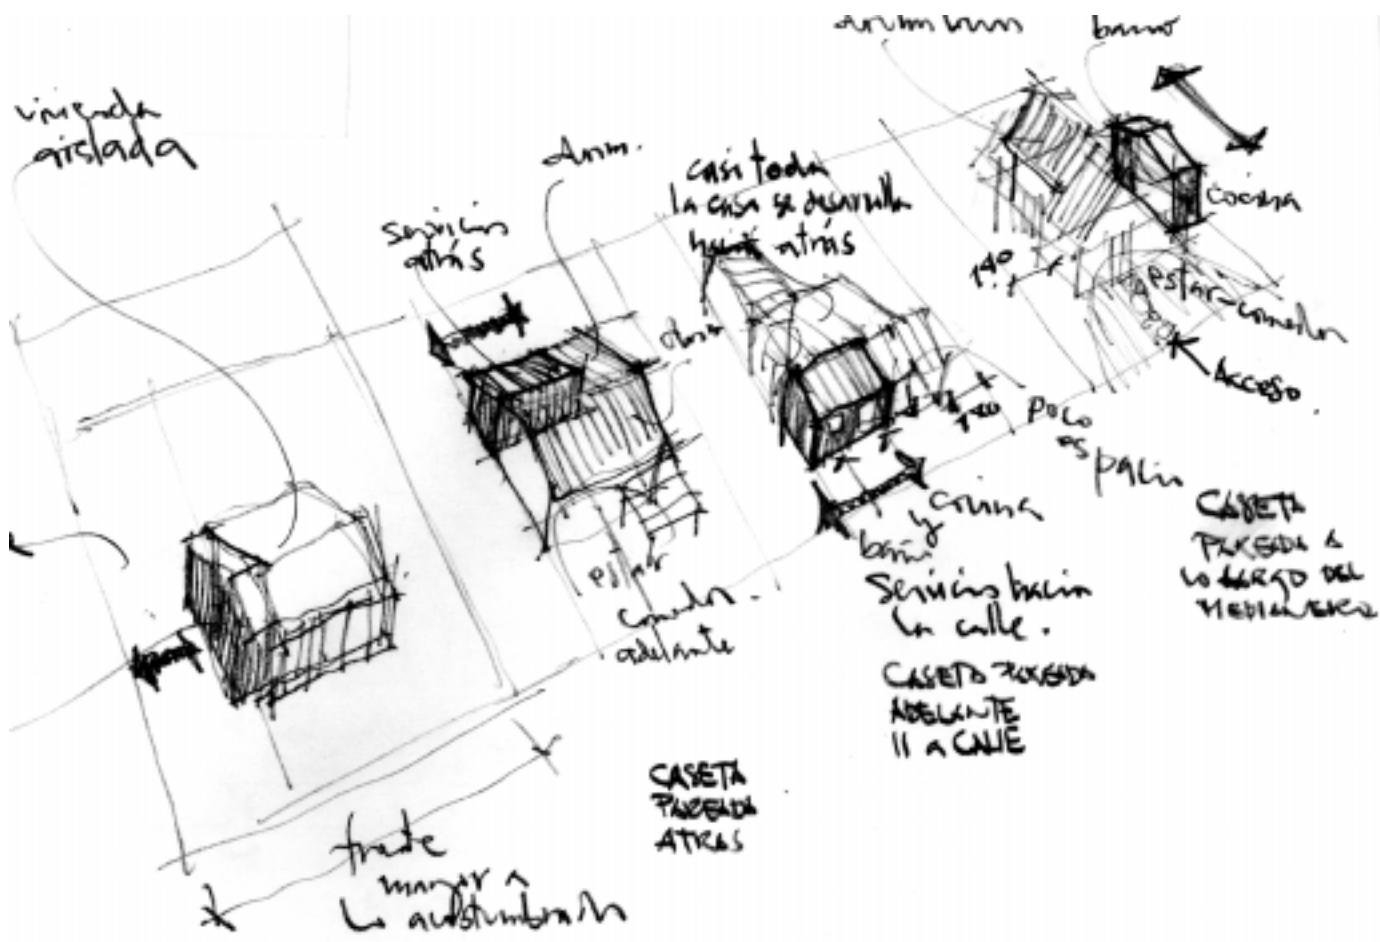 vivienda
aislada
frente
mayor a
lo acostumbrado
servicios
atrás
dorm.
dorm
estar
comedor
adelante
CASETA
PAREADA
ATRAS
casi toda
la casa se desarrolla
hacia atrás
poco
espacio
cocina
y
baño
servicios hacia
la calle.
CASETA PAREADA
ADELANTE
II a CALLE
dormitorios
baño
cocina
1.40
estar-comedor
Acceso
CASETA
PAREADA A
LO LARGO DEL
MEDIANERO